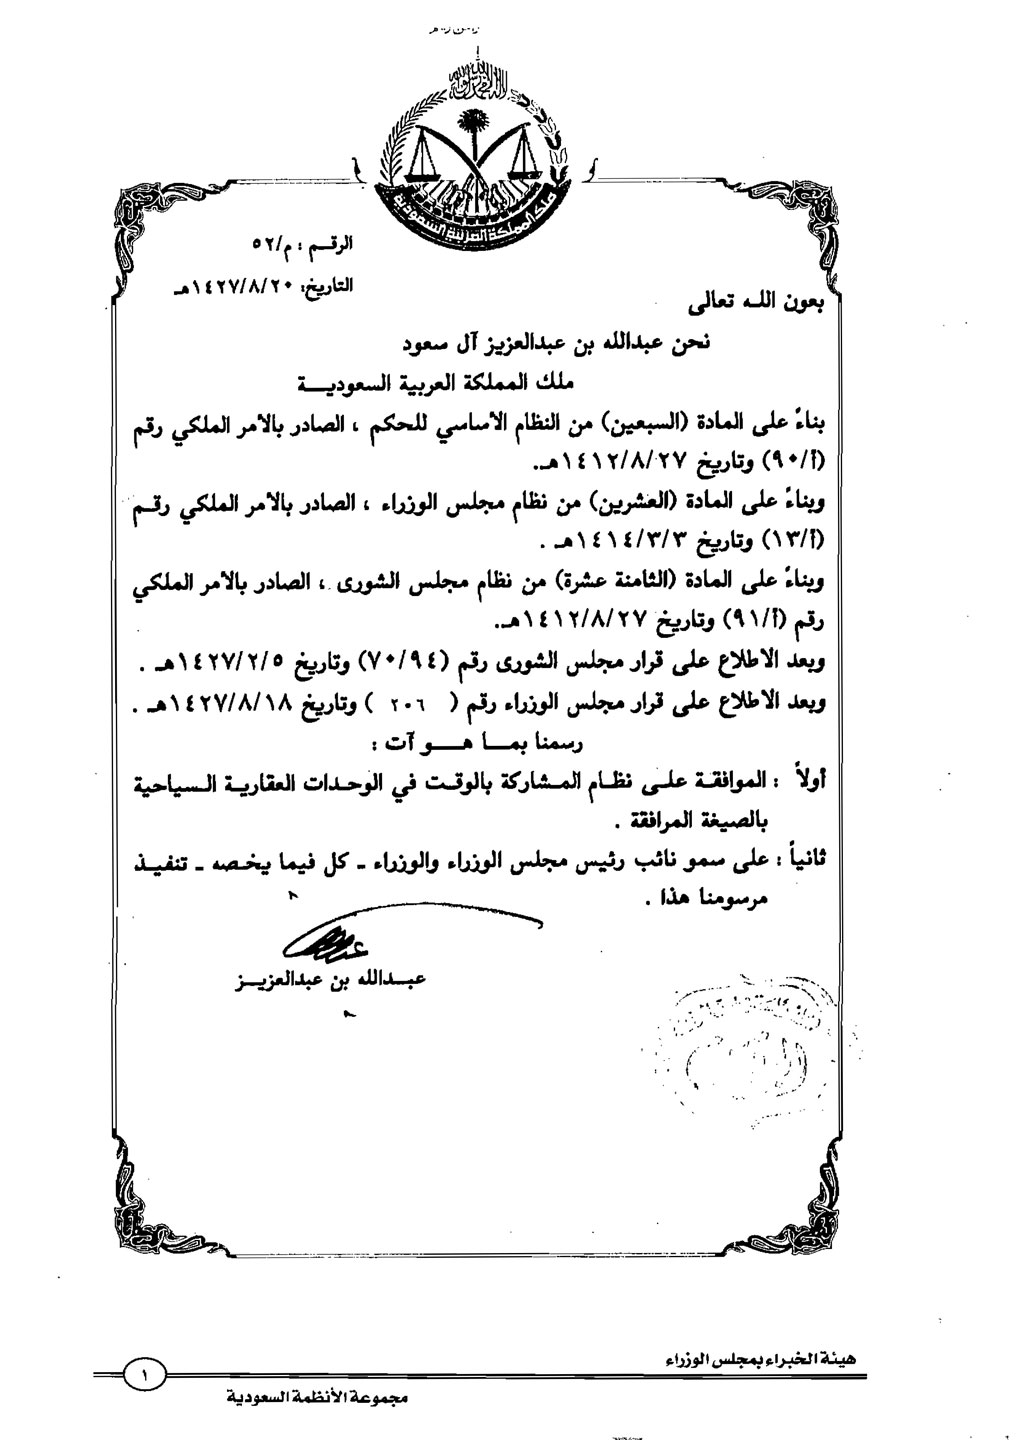 ملك المملكة العربية السعودية
الرقـم : م/٥٢
التاريخ: ١٤٢٧/٨/٢٠هـ
بعون اللـه تعالى
نحن عبدالله بن عبدالعزيز آل سعود
ملك المملكة العربية السعوديـــة
بناءً على المادة (السبعين) من النظام الأساسي للحكم ، الصادر بالأمر الملكي رقم
(أ/٩٠) وتاريخ ١٤١٢/٨/٢٧هـ.
وبناءً على المادة (العشرين) من نظام مجلس الوزراء ، الصادر بالأمر الملكي رقـم
(أ/١٣) وتاريخ ١٤١٤/٣/٣هـ .
وبناءً على المادة (الثامنة عشرة) من نظام مجلس الشورى ، الصادر بالأمر الملكي
رقم (أ/٩١) وتاريخ ١٤١٢/٨/٢٧هـ.
وبعد الاطلاع على قرار مجلس الشورى رقم (٧٠/٩٤) وتاريخ ١٤٢٧/٢/٥هـ .
وبعد الاطلاع على قرار مجلس الوزراء رقم ( ٢٠٦ ) وتاريخ ١٤٢٧/٨/١٨هـ .
رسمنا بمـــا هـــو آت :
أولاً : الموافقـة علـى نظـام المـشاركة بالوقـت في الوحـدات العقاريـة الـسياحية
بالصيغة المرافقة .
ثانياً : على سمو نائب رئيس مجلس الوزراء والوزراء ـ كل فيما يخـصه ـ تنفيـذ
مرسومنا هذا .
عبـدالله بن عبدالعزيـز
هيئة الخبراء بمجلس الوزراء
١
مجموعة الأنظمة السعودية